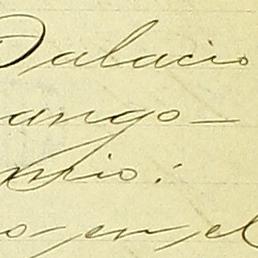 Palacio
ango-
nio.
o en el